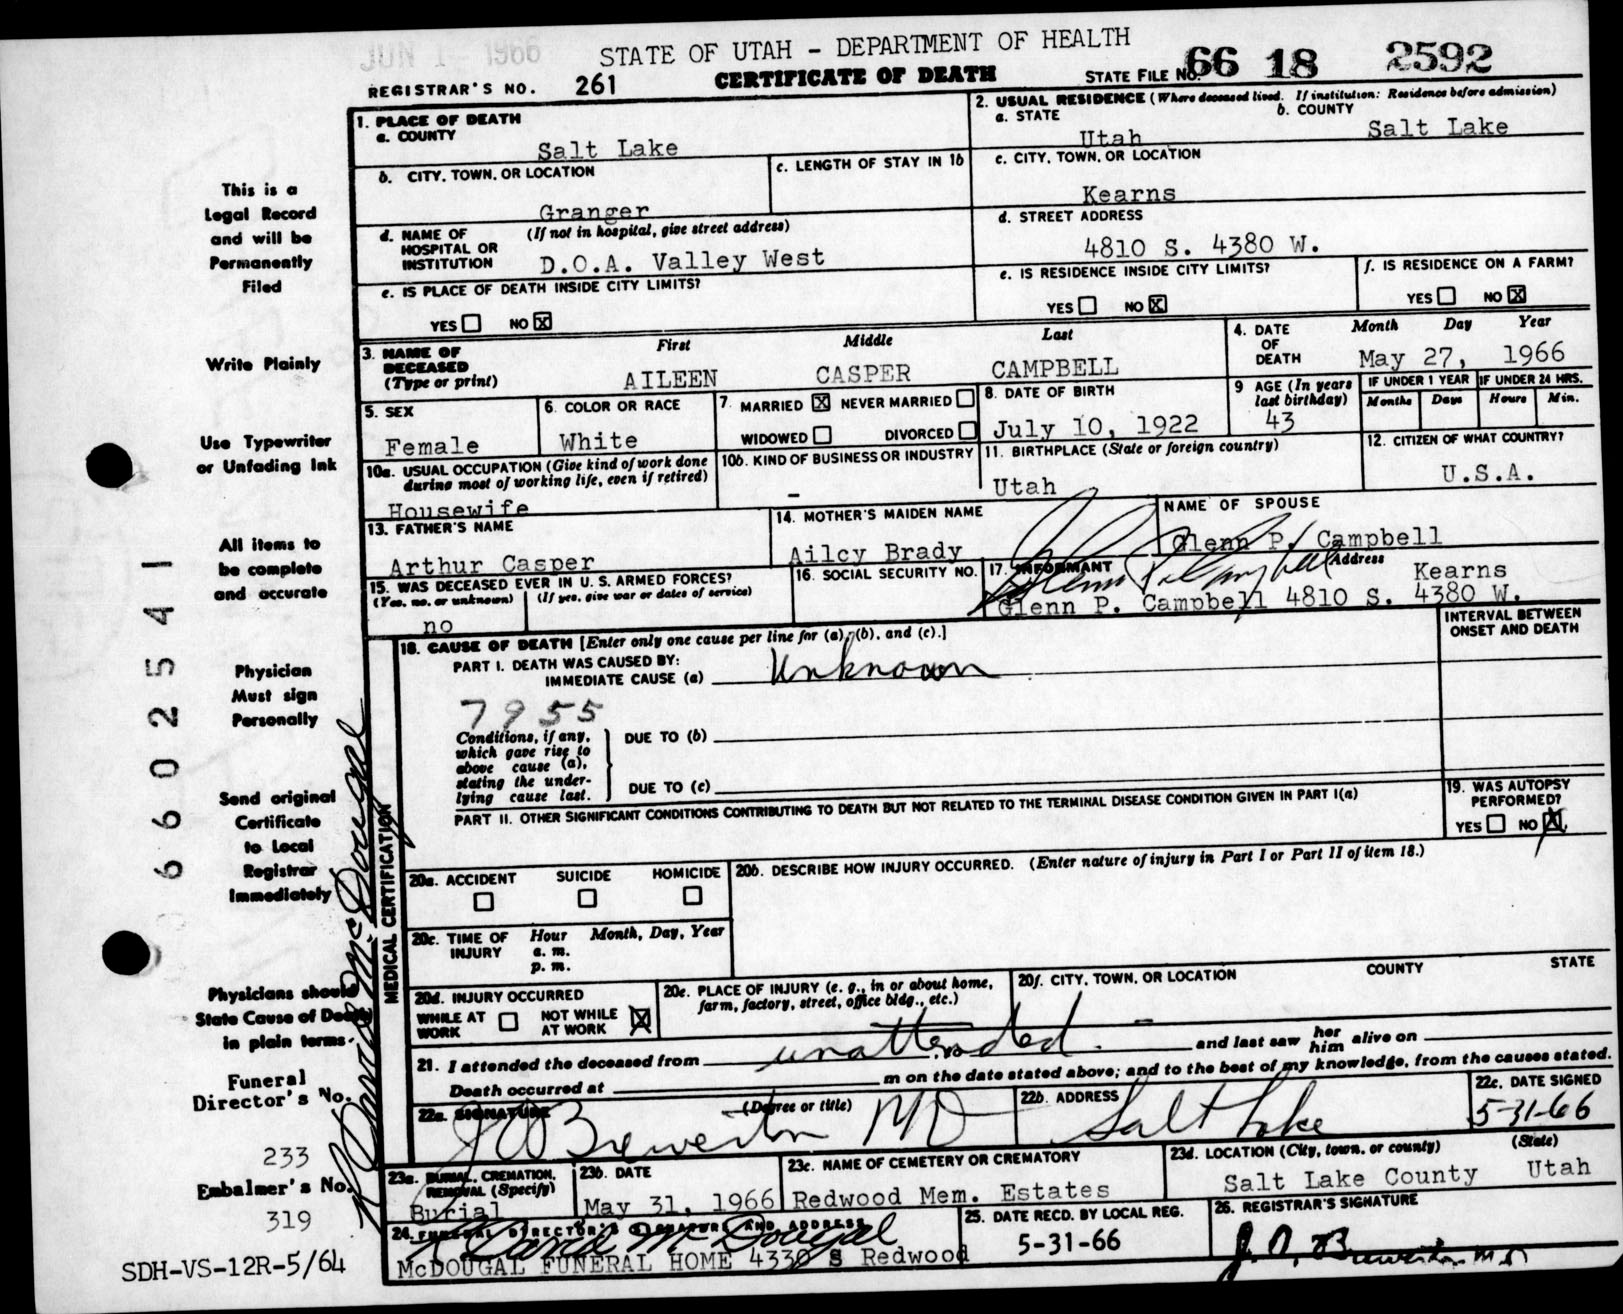 JUN 1 - 1966
STATE OF UTAH - DEPARTMENT OF HEALTH
REGISTRAR'S NO. 261 CERTIFICATE OF DEATH STATE FILE NO. 66 18 2592
1. PLACE OF DEATH
a. COUNTY
Salt Lake
2. USUAL RESIDENCE (Where deceased lived. If institution: Residence before admission)
a. STATE b. COUNTY
Utah Salt Lake
b. CITY, TOWN, OR LOCATION
Granger
c. LENGTH OF STAY IN 1b
c. CITY, TOWN, OR LOCATION
Kearns
d. NAME OF HOSPITAL OR INSTITUTION (If not in hospital, give street address)
D.O.A. Valley West
d. STREET ADDRESS
4810 S. 4380 W.
e. IS PLACE OF DEATH INSIDE CITY LIMITS?
YES NO X
e. IS RESIDENCE INSIDE CITY LIMITS?
YES NO X
f. IS RESIDENCE ON A FARM?
YES NO X
3. NAME OF DECEASED (Type or print)
First Middle Last
AILEEN CASPER CAMPBELL
4. DATE OF DEATH Month Day Year
May 27, 1966
5. SEX
Female
6. COLOR OR RACE
White
7. MARRIED X NEVER MARRIED
WIDOWED DIVORCED
8. DATE OF BIRTH
July 10, 1922
9 AGE (In years last birthday)
43
IF UNDER 1 YEAR IF UNDER 24 HRS.
Months Days Hours Min.
10a. USUAL OCCUPATION (Give kind of work done during most of working life, even if retired)
Housewife
10b. KIND OF BUSINESS OR INDUSTRY
-
11. BIRTHPLACE (State or foreign country)
Utah
12. CITIZEN OF WHAT COUNTRY?
U.S.A.
13. FATHER'S NAME
Arthur Casper
14. MOTHER'S MAIDEN NAME
Ailcy Brady
NAME OF SPOUSE
Glenn P. Campbell
15. WAS DECEASED EVER IN U.S. ARMED FORCES?
(Yes, no, or unknown) (If yes, give war or dates of service)
no
16. SOCIAL SECURITY NO.
17. INFORMANT Address
Glenn P. Campbell
Kearns
Glenn P. Campbell 4810 S. 4380 W.
18. CAUSE OF DEATH [Enter only one cause per line for (a), (b), and (c).]
PART I. DEATH WAS CAUSED BY:
IMMEDIATE CAUSE (a) Unknown
INTERVAL BETWEEN ONSET AND DEATH
7955
Conditions, if any, which gave rise to above cause (a), stating the underlying cause last.
DUE TO (b)
DUE TO (c)
PART II. OTHER SIGNIFICANT CONDITIONS CONTRIBUTING TO DEATH BUT NOT RELATED TO THE TERMINAL DISEASE CONDITION GIVEN IN PART I(a)
19. WAS AUTOPSY PERFORMED?
YES NO X
20a. ACCIDENT SUICIDE HOMICIDE
20b. DESCRIBE HOW INJURY OCCURRED. (Enter nature of injury in Part I or Part II of item 18.)
20c. TIME OF INJURY Hour Month, Day, Year
a. m.
p. m.
20d. INJURY OCCURRED
WHILE AT WORK NOT WHILE AT WORK X
20e. PLACE OF INJURY (e. g., in or about home, farm, factory, street, office bldg., etc.)
20f. CITY, TOWN, OR LOCATION COUNTY STATE
21. I attended the deceased from unattended. and last saw her him alive on
Death occurred at m on the date stated above; and to the best of my knowledge, from the causes stated.
22a. SIGNATURE (Degree or title)
J O Brewerton MD
22b. ADDRESS
Salt Lake
22c. DATE SIGNED
5-31-66
23a. BURIAL, CREMATION, REMOVAL (Specify)
Burial
23b. DATE
May 31, 1966
23c. NAME OF CEMETERY OR CREMATORY
Redwood Mem. Estates
23d. LOCATION (City, town, or county) (State)
Salt Lake County Utah
24. FUNERAL DIRECTOR'S SIGNATURE AND ADDRESS
McDougal
McDOUGAL FUNERAL HOME 4330 S Redwood
25. DATE RECD. BY LOCAL REG.
5-31-66
26. REGISTRAR'S SIGNATURE
J. O. Brewerton M D
This is a
Legal Record
and will be
Permanently
Filed
Write Plainly
Use Typewriter
or Unfading Ink
All items to
be complete
and accurate
Physician
Must sign
Personally
Send original
Certificate
to Local
Registrar
Immediately
Physicians should
State Cause of Death
in plain terms.
Funeral
Director's No.
233
Embalmer's No.
319
SDH-VS-12R-5/64
6602541
MEDICAL CERTIFICATION
McDougal